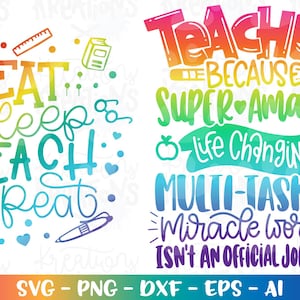 EAT
sleep
TEACH
repeat
TEACHE
BECAUSE
SUPER♥AMA
Life Changin
MULTI-TASK
Miracle wor
ISN'T AN OFFICIAL JO
SVG - PNG - DXF - EPS - AI